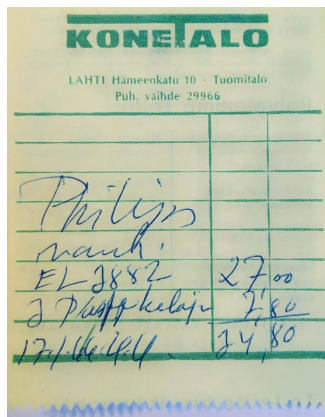 KONETALO
LAHTI Hämeenkatu 10 - Tuomitalo
Puh. vaihde 29966
Philips
nauh.
EL 3882 27,00
7,80
34,80